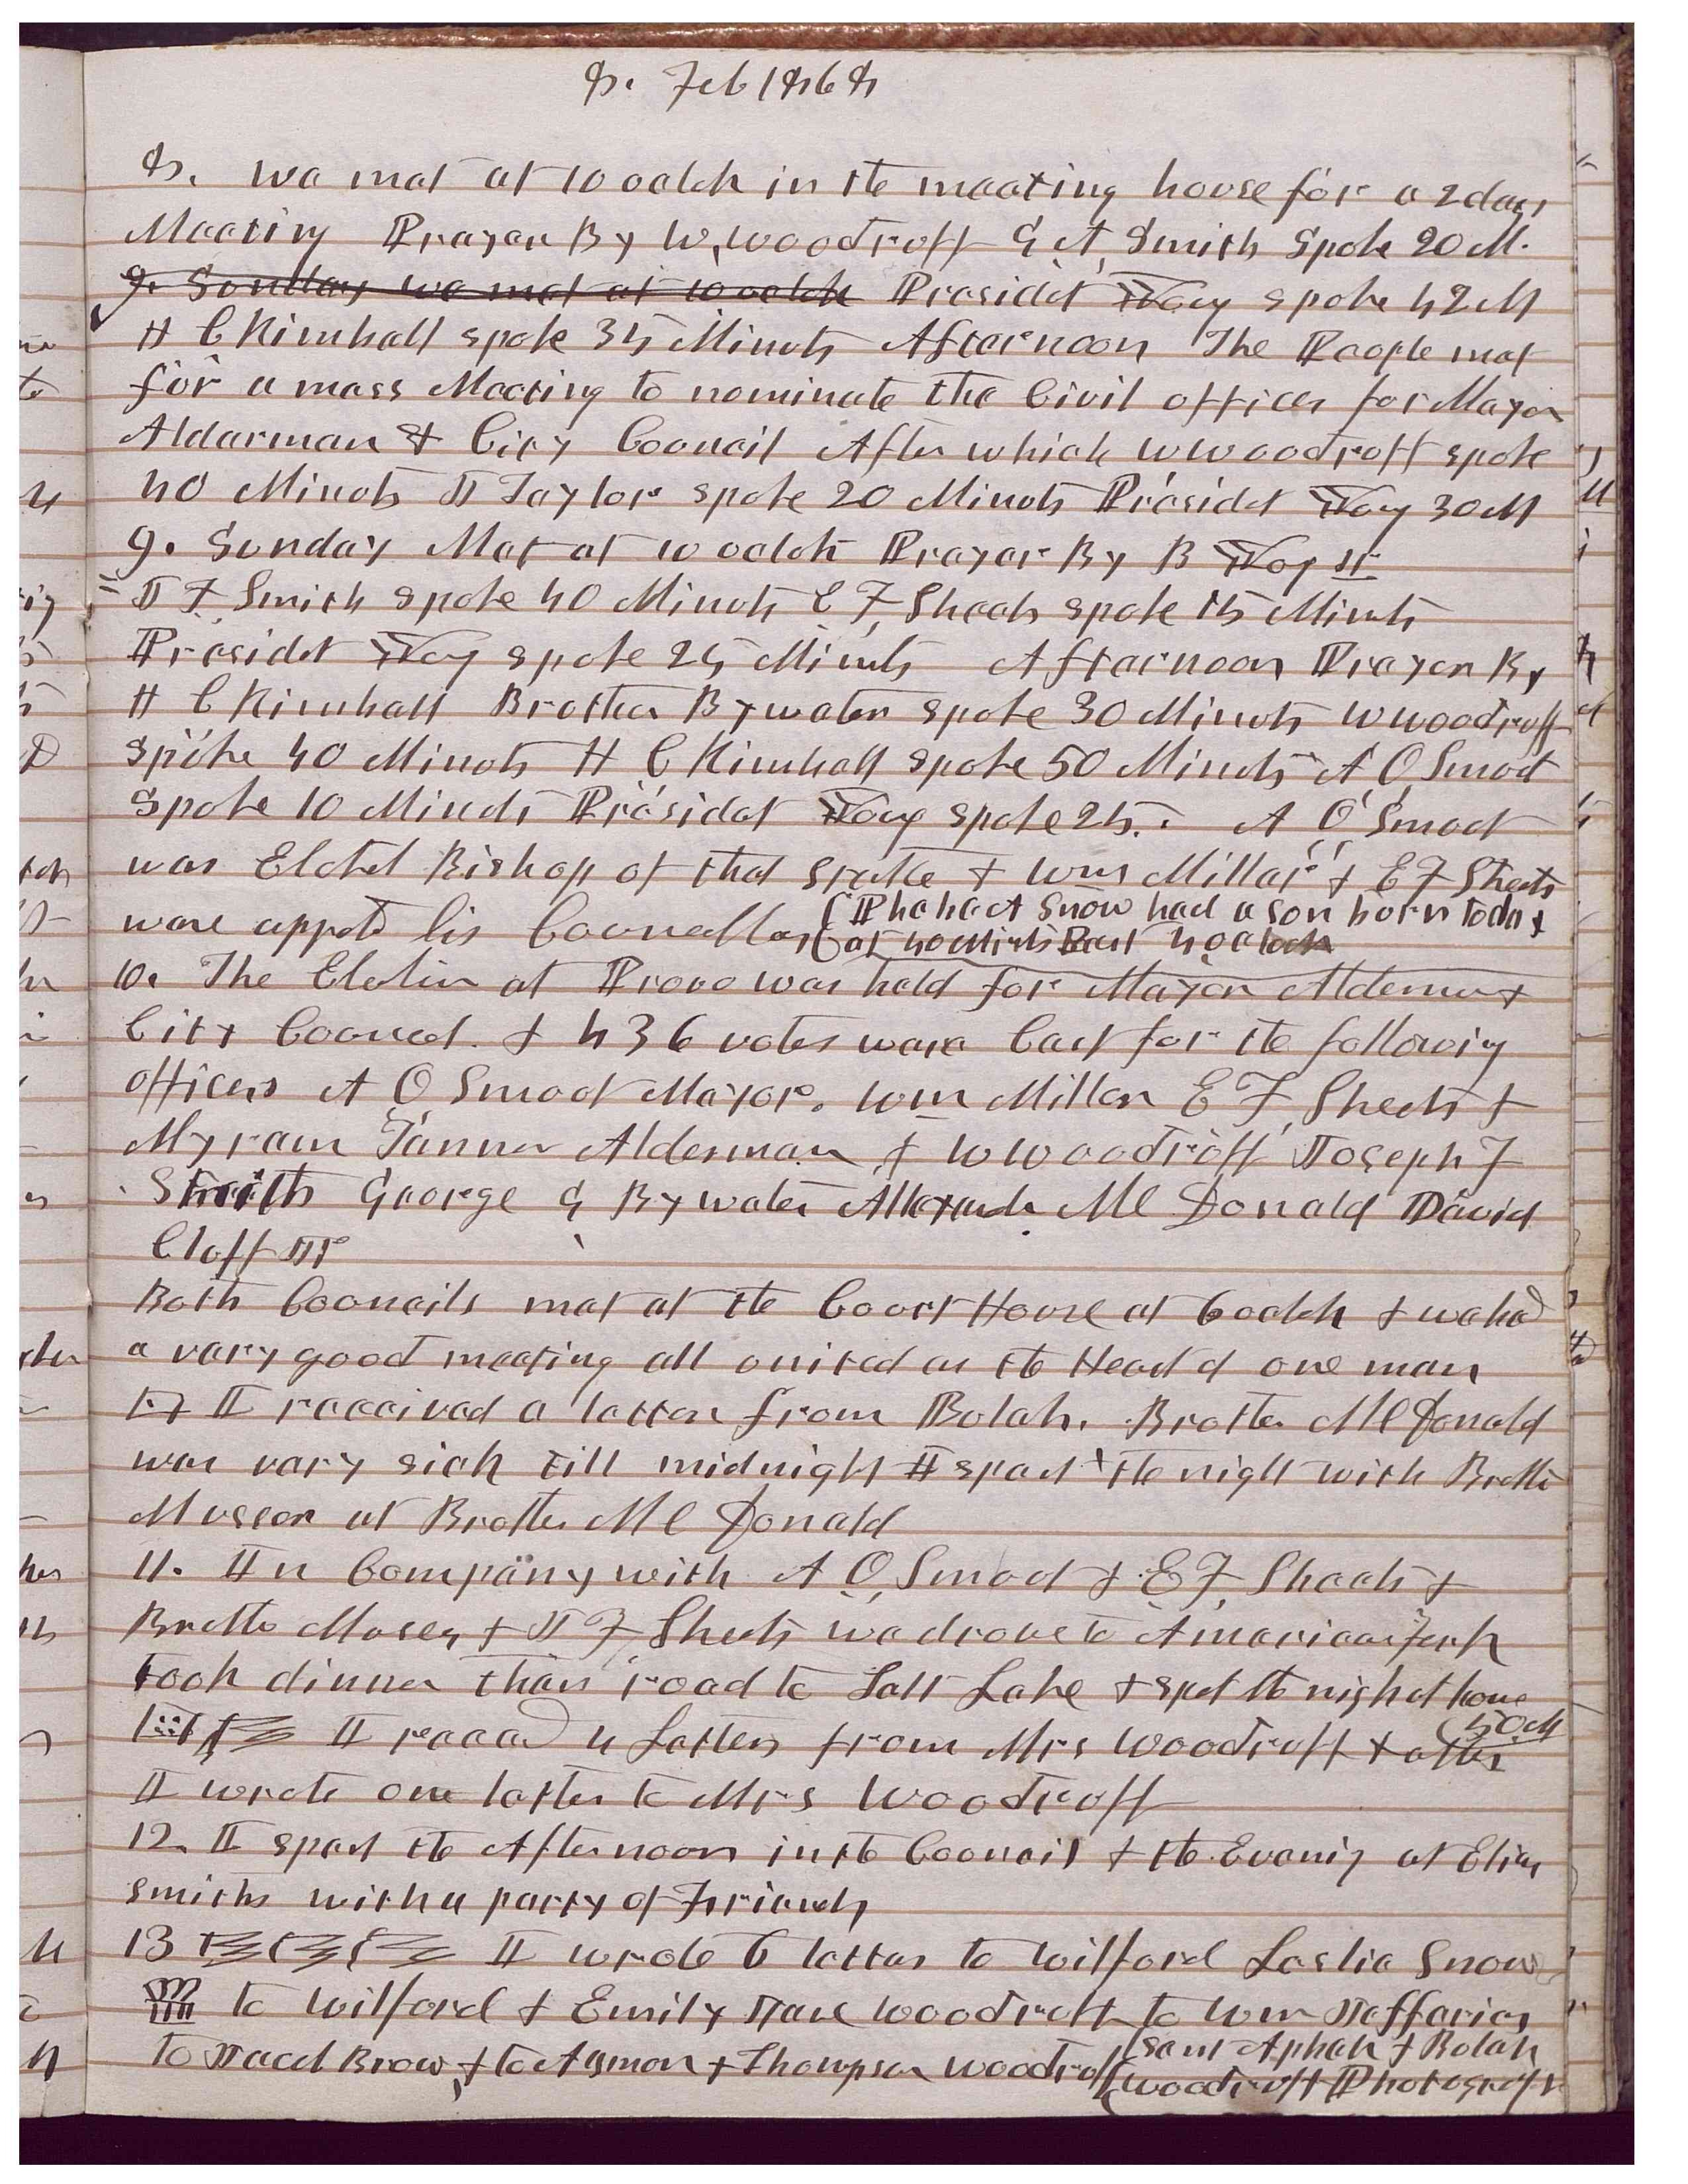 8. Feb 1868
8. we met at 10 oclok in the meeting house for a 2 days
Meeting Prayer By W. Woodruff G. A. Smith Spoke 20 M.
9. Sunday we met at 10 oclok Presidet Young spoke 42 M
H C Kimball spoke 35 Minuts Afternoon The People met
for a mass Meeting to nominate the Civil officers for Mayor
Alderman & City Councail After which W Woodruff spoke
40 Minuts J Taylor spoke 20 Minuts Presidet Young 30 M
9. Sunday Met at 10 oclok Prayer By B Young jr
J F Smith spoke 40 Minuts E F Sheets spoke 15 Minuts
Presidet Young spoke 25 Minuts Afternoon Prayer By
H C Kimball Brother Bywater spoke 30 Minuts W Woodruff
spoke 40 Minuts H C Kimball spoke 50 Minuts A O Smoot
spoke 10 Minuts Presidet Young spoke 25. A O Smoot
was Elcted Bishop of that Stake & Wm Miller & E F Sheets
were appotd his Councellors (Phebe A Snow had a son born today
(at 40 Minuts Past 4 oclock
10. The Election at Provo was held for Mayor Aldermen &
City Councel. & 436 votes were Cast for the following
officers A O Smoot Mayor. Wm Miller E F Sheets &
Myram Tanner Alderman & W Woodruff Joseph F
Smith George G Bywater Allexander Mc Donald David
Cluff Jr
Both Councils met at the Court House at 6 oclok & we had
a very good meeting all united as the Heart of one man
I received a letter from Bulah. Brother Mc Donald
was very sick till midnight I spent the night with Brother
Musser at Brother Mc Donald
11. In Company with A O Smoot & E F Sheets &
Brother Musser & J F Sheets we drove to American Fork
took dinner then road to Salt Lake & spet the night at home
I receed 4 Letters from Mrs Woodruff & other 50 M
I wrote one letter to Mrs Woodruff
12. I spent the Afternoon in the Councail & the Evenig at Elias
Smiths with a party of Friends
13 I wrote 6 letters to Wilford Leslie Snow
to Wilford & Emily Jane Woodruff to Wm Jefferies
to Jacob Brow & to Asmon & Thompson Woodruff (sent Aphek & Bulah
(Woodruff Photograph